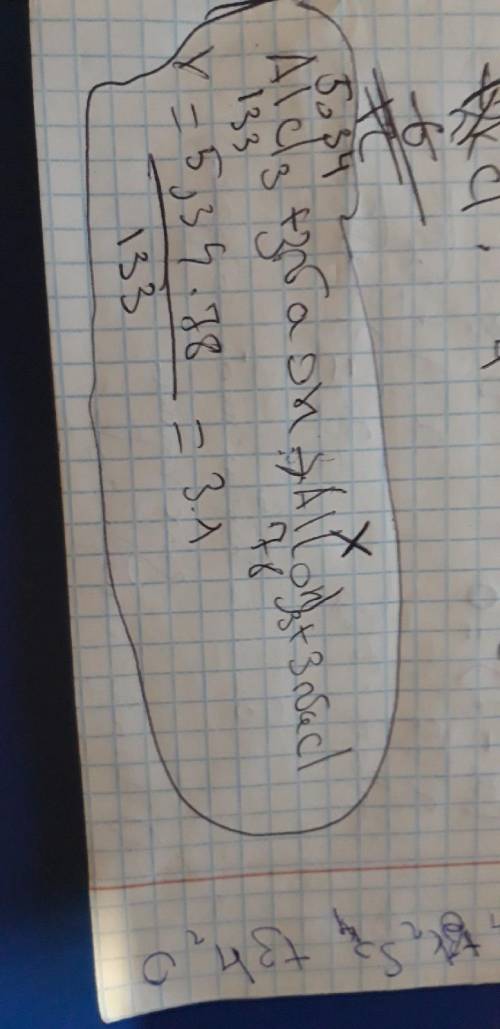 5,34 x
AlCl3 + 3NaOH → Al(OH)3 + 3NaCl
133 78
x = 5,34 · 78 / 133 = 3.1